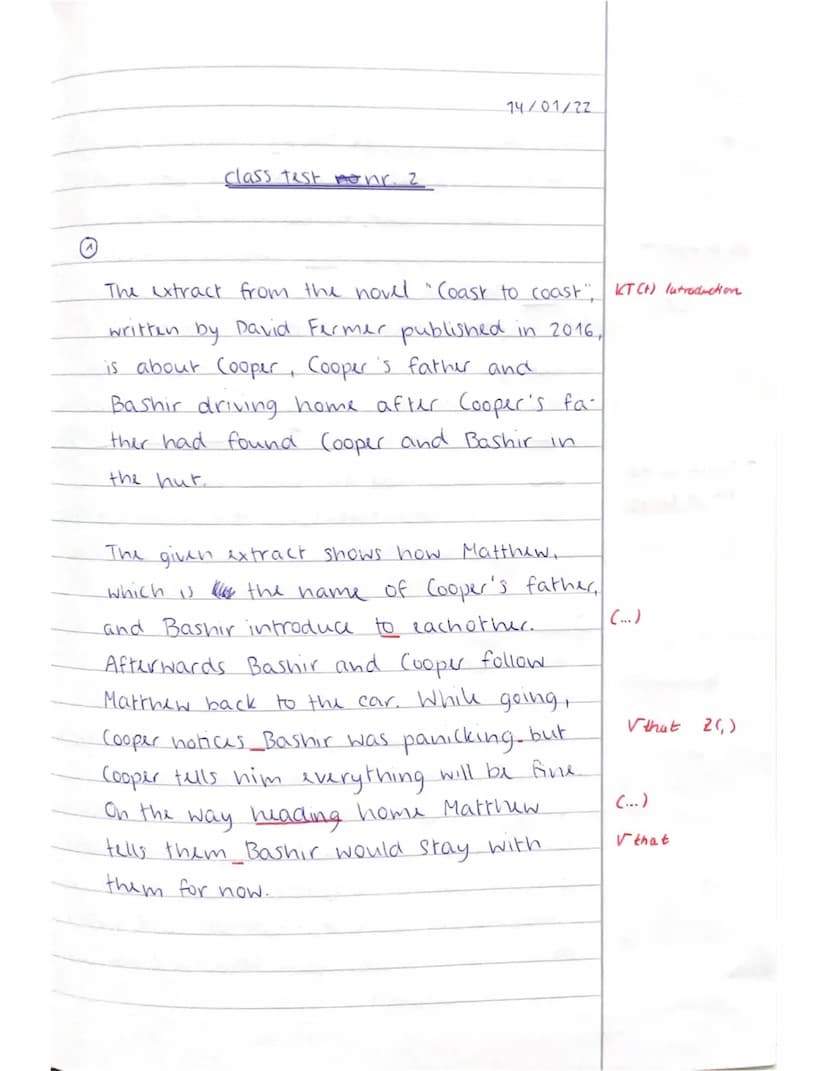 14/01/22
class test nr. 2
1
The extract from the novel "Coast to coast", KT (+) Introduction
written by David Fermer published in 2016,
is about Cooper, Cooper's father and
Bashir driving home after Cooper's fa-
ther had found Cooper and Bashir in
the hut.
The given extract shows how Matthew,
which is the name of Cooper's father,
and Bashir introduce to eachother. (...)
Afterwards Bashir and Cooper follow
Matthew back to the car. While going,
Cooper notices Bashir was panicking but √that Z(,)
Cooper tells him everything will be fine.
On the way heading home Matthew (...)
tells them Bashir would stay with √that
them for now.